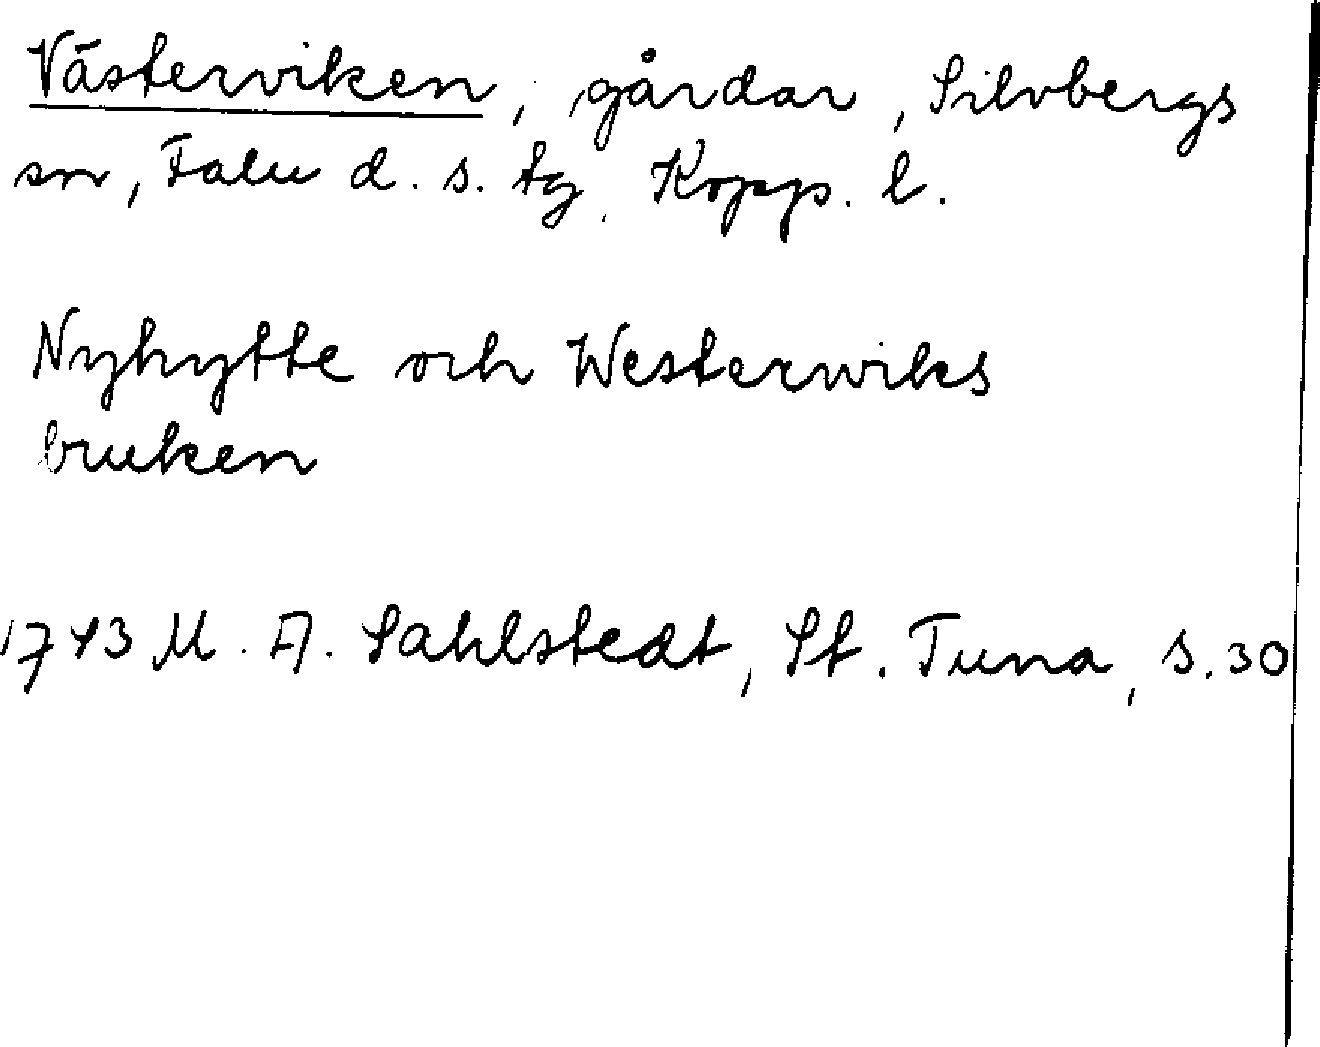 Västerviken, gårdar, Silvbergs
sn, Falu d. s. tg, Kopp. l.
Nyhytte och Westerwiks
bruken
1743 M. A. Sahlstedt, St. Tuna, s. 30